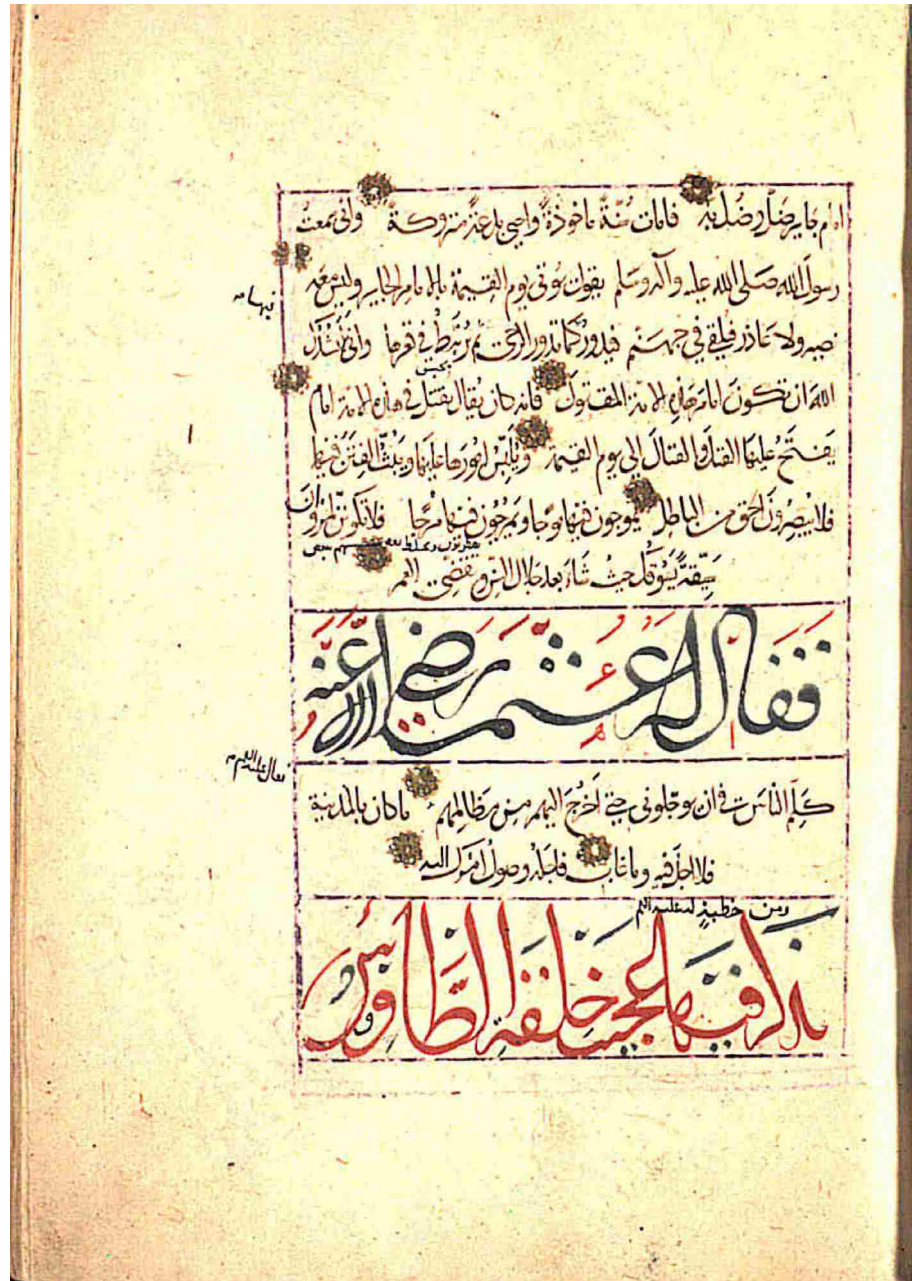 امام جاير ضلّ وضُلّ به فامات سُنّة ماخوذةً واحيى بدعةً متروكةً وانى سمعت
رسول الله صلى الله عليه وآله وسلم يقول يُوتى يوم القيمة بالامام الجاير وليس معه
نصير ولا عاذر فيلقى فى جهنم فيدور كما تدور الرحى ثم يُرتبط فى قعرها وانى اَنشُدُكَ
الله ان تكون امام هذه الامة المقتول فانه كان يُقال يقتل فى هذه الامة امام
يَفتَحُ عليها القتل والقتال الى يوم القيمة ويُلبّس اُمُورَها عليها ويَبُثّ الفِتَنَ فيها
فلا يُبصِرُونَ الحق من الباطل يموجون فيها موجا ويَمرُجُون فيها مَرجًا فلا تكوننّ لمروان
سيّقةً يَسُوقك حيث شاءَ بعد جلال السن وتقضّى العمر
فقال له عثمان رضي الله عنه
كَلّم الناسَ فى ان يوجّلونى حتى اَخرُجَ اليهم من مظالمهم
فقال عليه السلم
ما كان بالمدينة
فلا اجل فيه وما غاب فاجله وصول امرك اليه
ومن خطبة له عليه السلم
يذكر فيها عجيب خلقة الطاووس